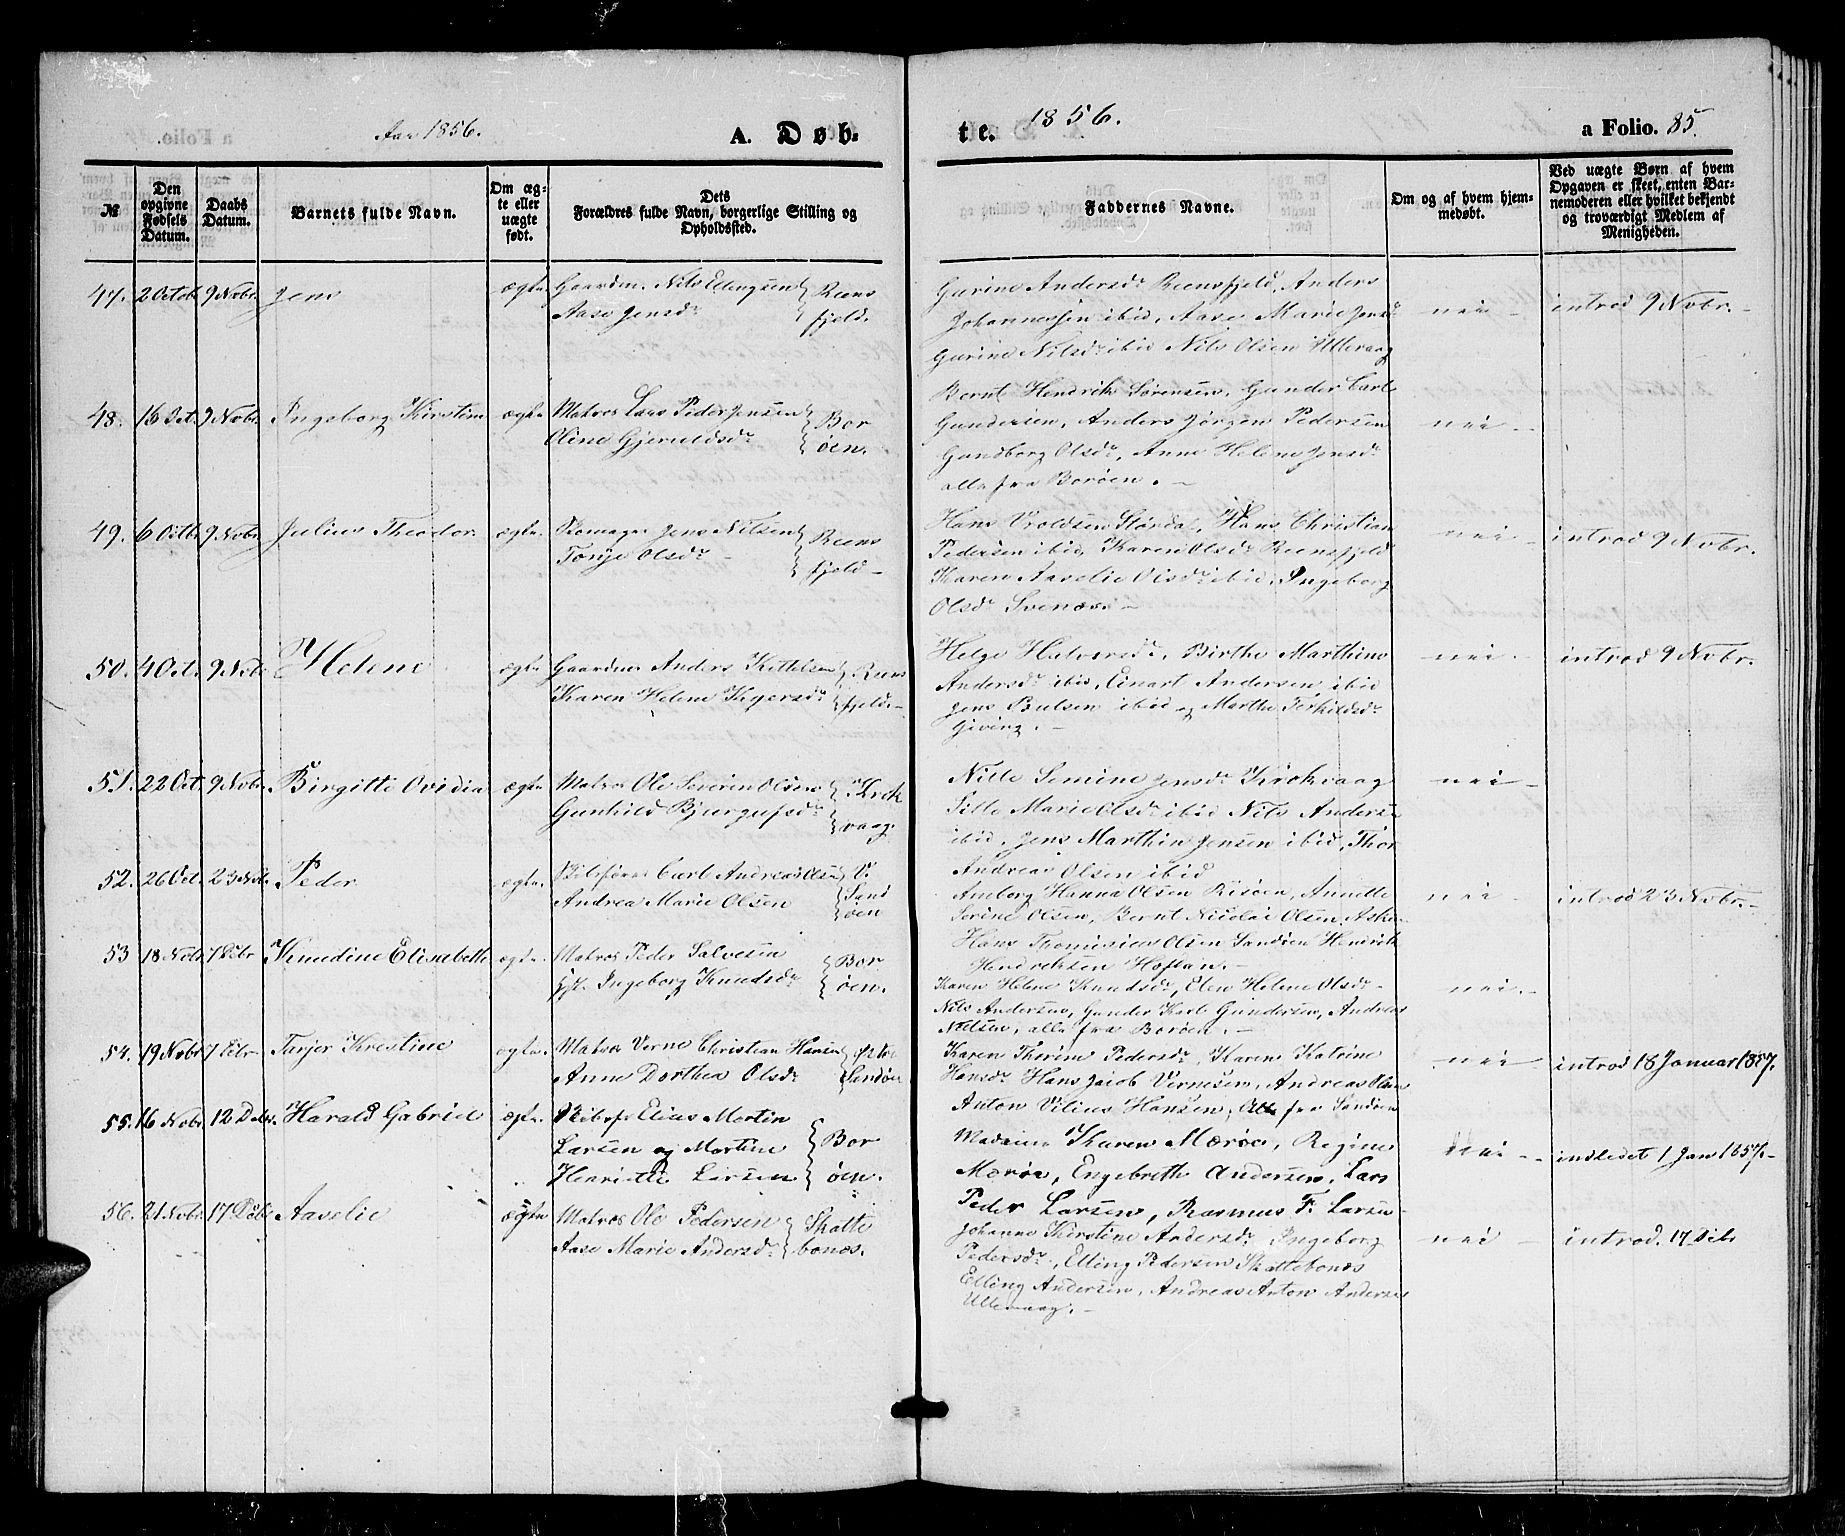 Aar 1856.
A. Døb-
te.
1856.
a Folio. 85.
№
Den opgivne Fødsels Datum.
Daabs Datum.
Barnets fulde Navn.
Om ægte eller uægte født.
Dets Forældres fulde Navn, borgerlige Stilling og Opholdssted.
Faddernes Navne.
Om og af hvem hjemmedøbt.
Ved uægte Børn af hvem Opgaven er skeet, enten Barnemoderen eller hvilket bekjendt og troværdigt Medlem af Menigheden.
47. 2 Octob 9 Nobr. Jens ægte. Gaardm. Nils Ellingsen
Aase Jensdr
Reens
fjeld.
Gurine Andersdr Reensfjeld, Anders
Johannessen ibid, Aase Marie Jensdr
Gurine Nilsdr ibid Nils Olsen Ullevaag
nei - introd 9 Nobr. -
48. 16 Oct. 9 Nobr. Ingeborg Kirstine ægte. Matros Lars Peder Jensen
Oline Gjeruldsdr
Bor
øen.
Bernt Hendrik Sørensen, Gunder Carl
Gundersen, Anders Jørgen Pedersen
Gundborg Olsdr, Anne Helene Jensdr
alle fra Borøen. -
nei -
49. 6 Octbr 9 Nobr. Julius Theodor ægte. Skomager Jens Nilsen
Tonje Olsdr -
Reens
fjeld -
Hans Vroldsen Størdal, Hans Christian
Pedersen ibid, Karen Olsdr Reensfjeld
Karen Aaselie Olsdr ibid, Ingeborg
Olsdr Svenæs. -
nei - introd 9 Nobr.
50. 4 Oct. 9 Nobr Helene ægte Gaardm Anders Kittelsen
Karen Helene Regersdr
Reens
fjeld. -
Helge Halvorsdr, Birthe Marthine
Andersdr ibid, Einart Andersen ibid
Jens Poulsen ibid og Marthe Terkildsdr
Giving. -
nei - introd 9 Nobr.
51. 22 Oct. 9 Nobr. Birgitte Ovidia ægte. Matros Ole Severin Olsen
Gunhild Bjergufsdr
Krok
vaag.
Nille Semine Jensdr Krokvaag
Sille Marie Olsdr ibid Nils Anders
ibid, Jens Marthin Jensen ibid, Thor
Andreas Olsen ibid
nei -
52. 26 Oct. 23 Nob. Peder ægte. Carl Andreas Olsen
Andrea Marie Olsen
V.
Sand
øen
Amborg Hanna Olsen Risøen, Annette
Serine Olsen, Bernt Nicolai Olsen, Asker
Hans Thomesius Olsen Sandøen Hendrik
Hendriksen Hoflan. -
nei - introd 23 Nobr. -
53 18 Nobr 7 Debr Knudine Elisabeth ægte. Matros Peder Salvesen
Ingeborg Knudsdr
Bor
øen.
Karen Helene Knudsdr, Elen Helene Olsdr -
Nils Andersen, Gunder Karl Gundersen, Andreas
Nielsen, alle fra Borøen. -
nei. -
54. 19 Nobr 7 Debr Tarjer Kristine ægte. Matros Verne Christian Hansen
Anne Dorthea Olsdr
Øst
Sandøen
Karen Thorine Pedersdr, Karen Katrine
Hansdr Hans Jacob Vernesen, Andreas Olsen
Anton Vilius Hansen, Alle fra Sandøen
nei - introd 18 Januar 1857.
55. 16 Nobr. 12 Debr. Harald Gabriel ægte. Skibsf Elias Mortin
Larsen og Martine
Henriette Larsen
Bor
øen.
Karen Mærøe, Regine
Mærøe, Engebreth Andersen, Lars
Peder Larsen, Rasmus F. Larsen
nei - - indledet 1 Jan 1857. -
56. 21 Nobr. 17 Debr Aaselie ægte Matros Ole Pedersen
Aase Marie Andersdr
Skotte
bonæs.
Johanne Kirstine Andersdr, Ingeborg
Pedersdr, Elling Pedersen Skottebonæs
Elling Andersen, Andreas Anton Andersen
Ullevaag. -
nei - introd. 17 Debr